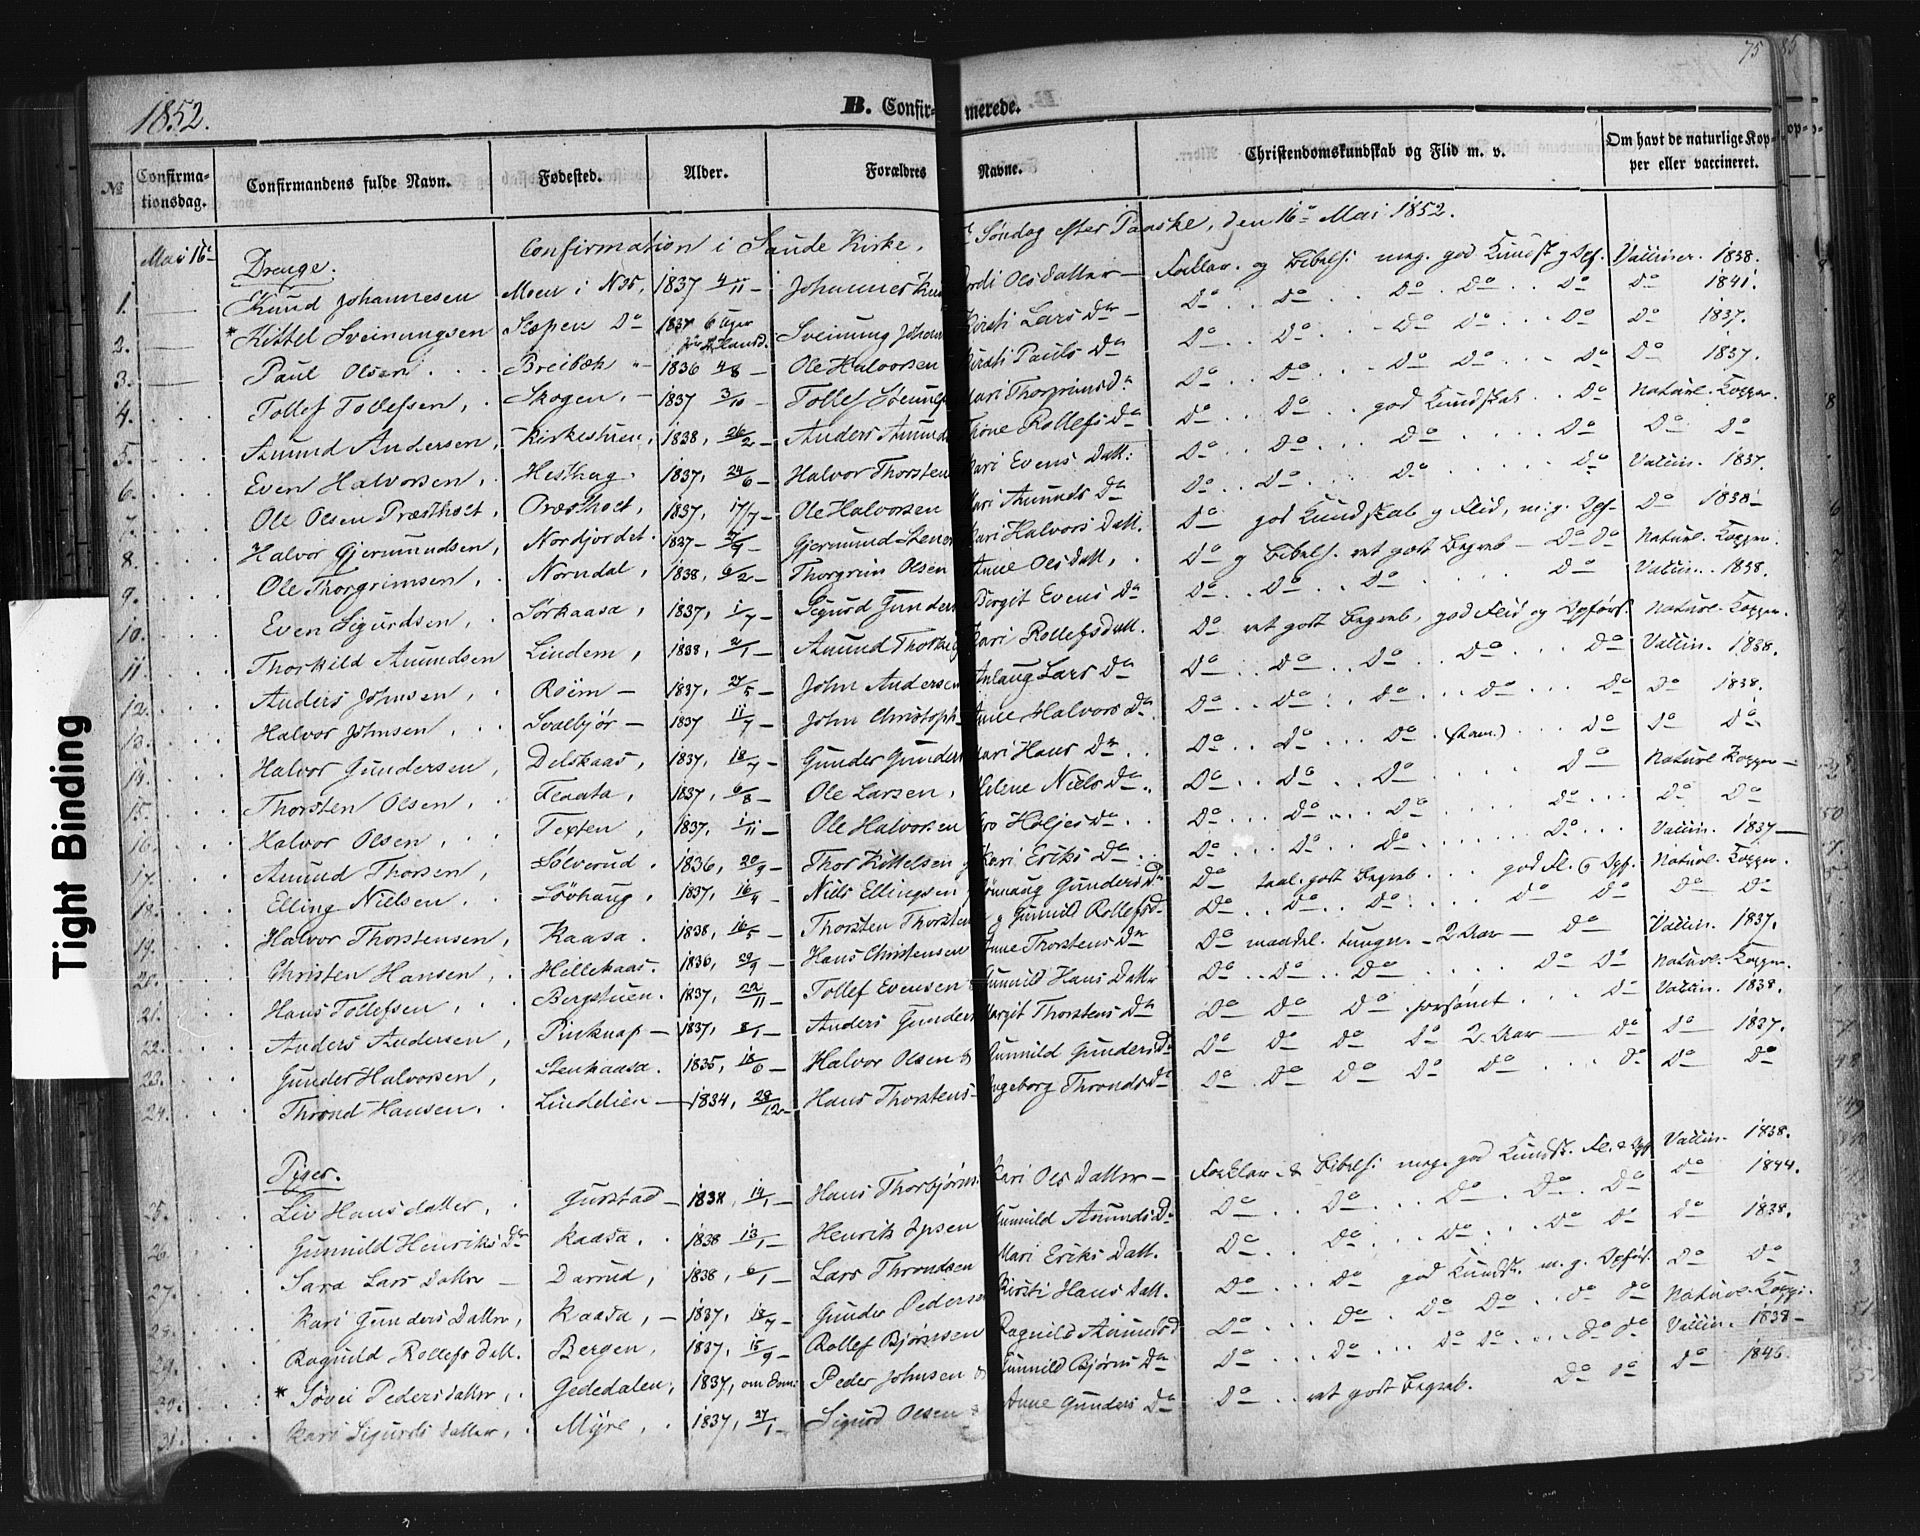 75 85
1852. B. Confirmerede.
№ Confirmationsdag. Confirmandens fulde Navn. Fødested. Alder. Forældres Navne. Christendomskundskab og Flid m. v. Om havt de naturlige Kopper eller vaccineret.
Mai 16de Confirmation i Saude Kirke, Søndag efter Paaske, den 16de Mai 1852.
Drenge.
1. Knud Johannesen Moen i N35, 1837 4/11 Johannes Olsdatter Forklar. og Bibelh. meg. god Kundsk. g Opf. Vacciner. 1838.
2. * Kittel Sveinungsen Do 1837 6 Uger Sveinung Kirsti Lars Dr Do Do Do Do Do Do 1841.
3. Paul Olsen Breibæk 1836 4/8 Ole Halvorsen Pauls Dr Do Do Do Do Do Do 1837.
4. Tollef Tollefsen, Skogen, 1837 3/10 Tollef Kari Thorgrims Dr Do Do Do Do Do Do 1837.
5. Amund Andersen Kirkestuen, 1838, 26/2 Anders Amund Thone Rollefs Dr Do Do god Kundskab Do Naturl. Kopper
6. Even Halvorsen, Hesthag. 1837, 24/6 Halvor Thorsten Kari Evens Datt: Do Do Do Do Do Do
7. Ole Olsen Præstholt, Præstholt, 1837, 17/7 Ole Halvorsen Kari Amunds Dr Do Do Do Do Vaccin. 1837.
8. Halvor Gjermundsen, Nordjordet 1837 Gjermund Kari Halvors Datt. Do god Kundskab g Flid, m. g. Opf. Do 1838
9. Ole Thorgrimsen, Norndal, 1838, 6/2 Thorgrim Olsen Anne Ols Datt, Do g Bibelh. ret godt Begreb Do Do Naturl. Kopper
10. Even Sigurdsen, Sørkaasa, 1837, 1/7 Sigurd Gunders Bergit Evens Dr Do Do Do Do Vaccin. 1838.
11. Thorkild Amundsen Lindem, 1838, 2/1 Amund Kari Rollefs Datt. Do ret godt Begreb, god Flid og Opførs. Naturl. Kopper
12. Anders Johnsen, Roim 1837, 27/5 John Andersen Anlaug Lars Dr Do Do Do Do Do Vaccin. 1838.
13. Halvor Johnsen, Svalbjør 1837 11/7 John Christoph Anne Halvors Dr Do Do Do Do Do Do 1838.
14. Halvor Gundersen, Delskaas, 1837, 18/7 Gunder Gunders Kari Hans Dr Do Do Do Do Do Do
15. Thorsten Olsen, Flaata, 1837, 6/8 Ole Larsen, Helene Niels Dr Do Do Do Do Naturl Kopper
16. Halvor Olsen Texten, 1837, 1/11 Ole Halvorsen Høljes Dr Do Do Do Do Do Do
17. Amund Thorsen, Sølverud. 1836, 20/9 Thor Kittelsen Kari Eriks Dr Do Do Do Do Vaccin. 1837
18. Elling Nielsen Løvhaug, 1837, 16/4 Niels Ellingsen Gunders Dr Do taal. godt Begreb god Fl. & Opf. Naturl. Kopper
19. Halvor Thorstensen, Kaasa. 1838, 16/5 Thorsten Thorsten g Gunild Rollefsd. Do Do Do Do Do Do Do
20. Christen Hansen, Hellekaas. 1836, 29/9 Hans Christensen Anne Thorstens Dr Do maadel. 2 Aar Do Vaccin. 1837.
21. Hans Tollefsen, Bergstuen. 1837, 22/11 Tollef Evensen Gunnild Hans Datter Do Do Do Do Do Naturl. Kopper
22. Anders Andersen, Pinknap 1837, 8/1 Anders Gunders Margit Thorstens Dr Do Do Do forsømt Do Vaccin. 1838.
23. Gunder Halvorsen, Stenkaasa. 1835, 18/6 Halvor Olsen Gunnild Gunders Dr Do Do Do Do 2. Aar Do Do 1837.
24. Thrond Hansen. Lindelien 1834, 28/12 Hans Thorstens Ingeborg Thronds Dr Do Do Do Do Do Do Do Do
Piger.
25. Liv Hans datter, Gurstad 1838, 14/1 Hans Thorbjørn Kari Ols Datter Forklar. & Bibelh. meg. god Kundsk. Fl. & Opf Vaccin. 1838.
26. Gunnild Henriks Dr Kaasa, 1838 13/1 Henrik Ipsen Gunnild Amunds Dr Do Do Do Do Do Do 1844.
27. Sara Lars Datter Darrud, 1838, 6/1 Lars Throndsen Mari Eriks Datt. Do Do Do Do Do Do 1838.
28. Kari Gunders Datter, Kaasa, 1837, 18/7 Gunder Peders Kirsti Hans Datt. Do Do god Kundsk. m. g. Opførs. Do Do
29. Ragnild Rollefs Datt. Bergen, 1837, 15/9 Rollef Bjørnsen Ragnild Amunds d Do Do Do Do Do Do Naturl. Kopp.
30. * Søvei Peders datter, Gededalen, 1837, om Som: Peder Johnsen Gunnild Bjørns Dr Do Do Do Do Do Do Vaccin. 1838
31. Kari Sigurds datter, Myre, 1837, 27/1 Sigurd Olsen & Anne Gunders Dr Do ret godt Begreb. Do Do Do 1846.
Tight Binding